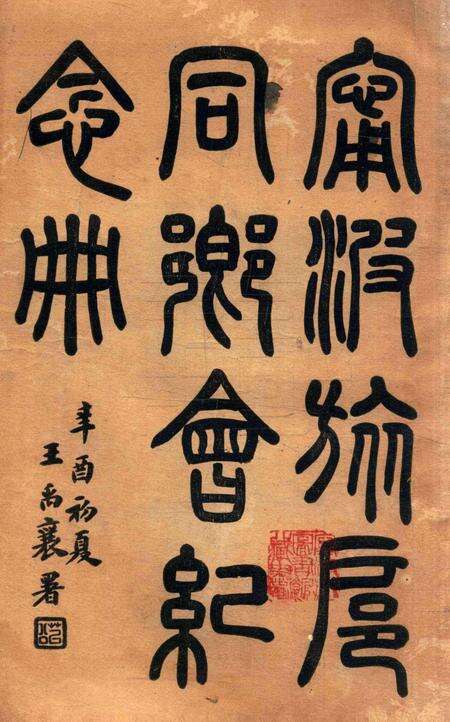 甯波旅扈
同鄉會紀
念冊
辛酉初夏
王禹襄署